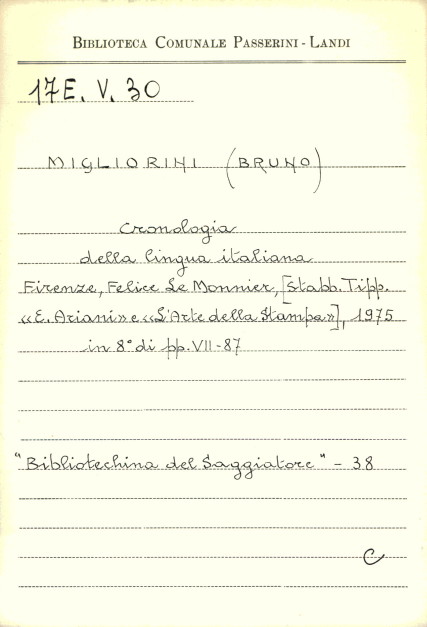 BIBLIOTECA COMUNALE PASSERINI - LANDI
17E. V. 30
MIGLIORINI (BRUNO)
Cronologia
della lingua italiana
Firenze, Felice Le Monnier, [Stabb. Tipp.
«E. Ariani» e «L'Arte della Stampa»], 1975
in 8° di pp. VII-87
"Bibliotechina del Saggiatore" - 38
C